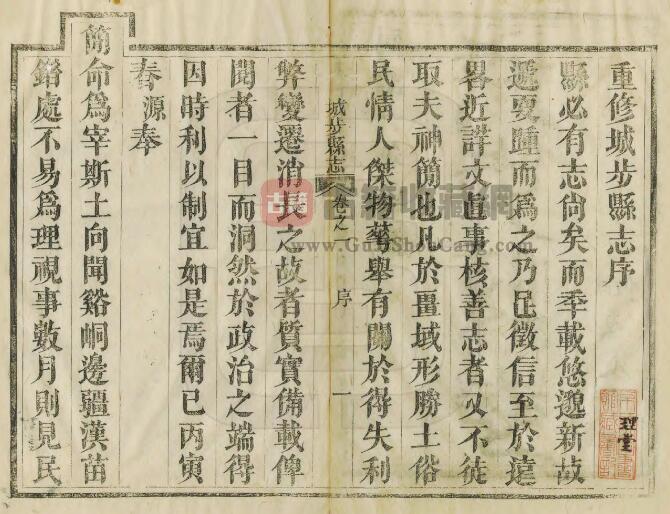 重修城步縣志序
縣必有志尚矣而年載悠邈新故
遞更踵而爲之乃足徵信至於遠
畧近詳文直事核善志者又不徒
取夫神簡也凡於畺域形勝土俗
民情人傑物莠舉有關於得失利
城步縣志 卷之 序 一
弊變遷消長之故者質實備載俾
閱者一目而洞然於政治之端得
因時利以制宜如是焉爾已丙寅
春源奉
簡命爲宰斯土向聞谿峒邊疆漢苗
錯處不易爲理視事數月則見民
理堂
古籍收藏網
www.GuJiShouCang.com